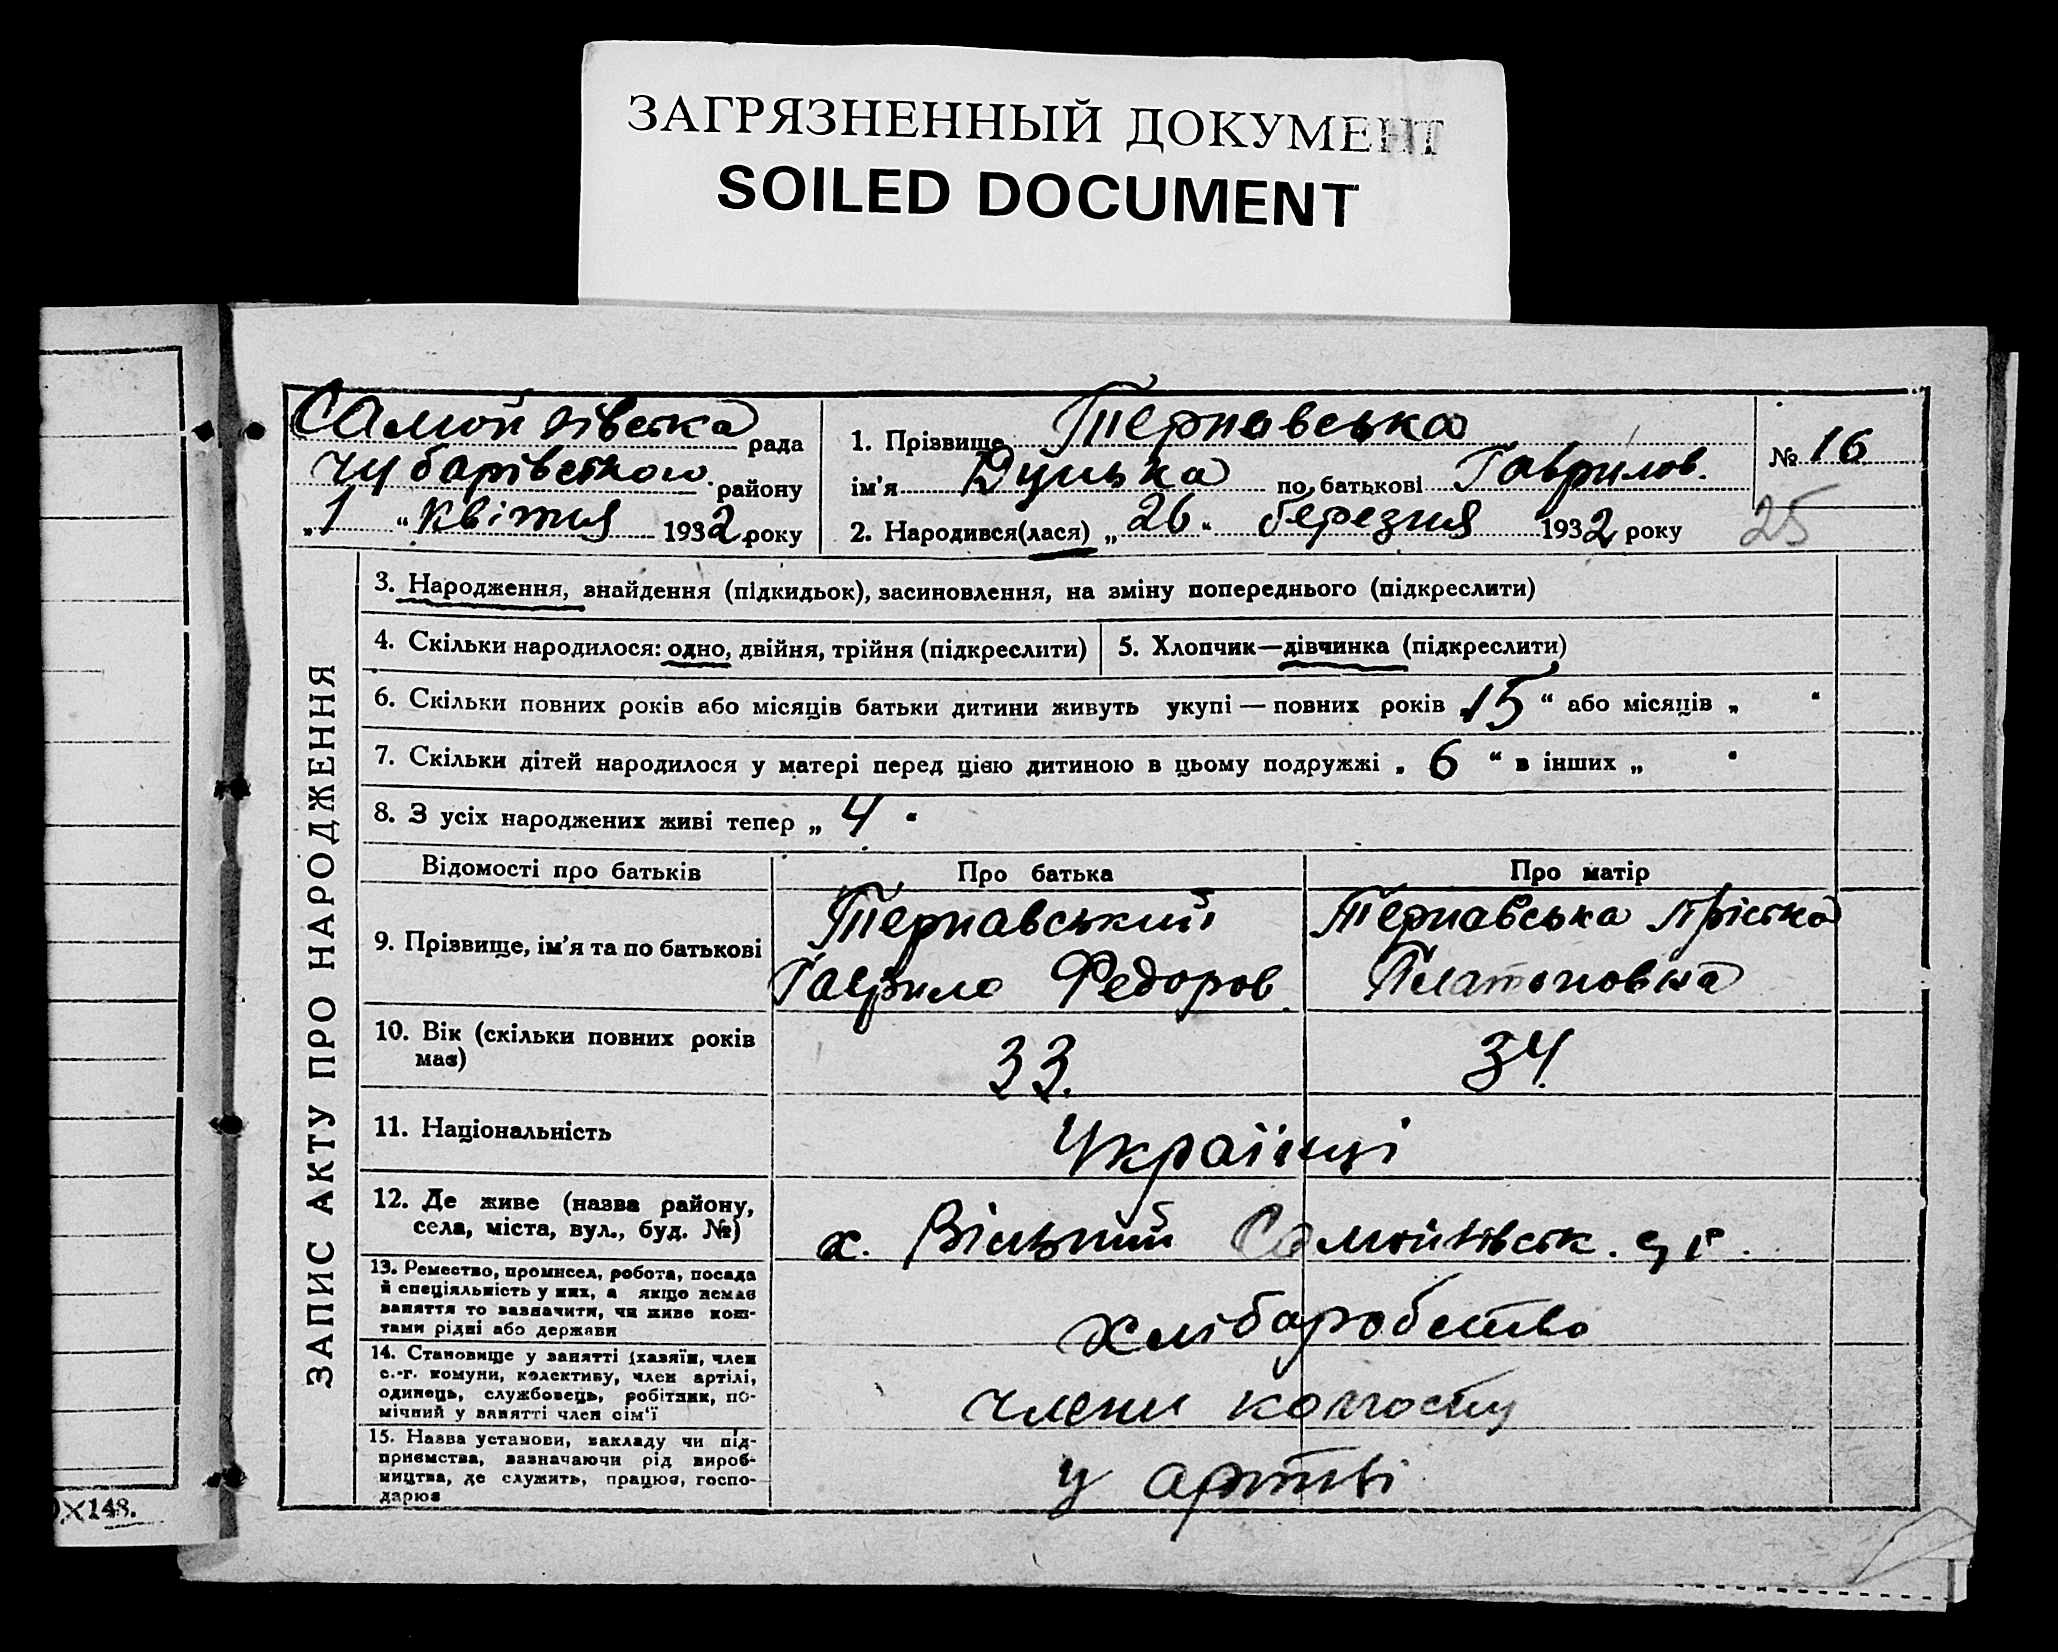 ЗАГРЯЗНЕННЫЙ ДОКУМЕНТ
SOILED DOCUMENT
Самойлівська рада
Чубарівського району
„1“ квітня 1932 року
1. Прізвище Тернавська
ім'я по батькові Гаврилов.
2. Народився(лася) „26“ березня 1932 року
№ 16
25
ЗАПИС АКТУ ПРО НАРОДЖЕННЯ
3. Народження, знайдення (підкидьок), засиновлення, на зміну попереднього (підкреслити)
4. Скільки народилося: одно, двійня, трійня (підкреслити)
5. Хлопчик—дівчинка (підкреслити)
6. Скільки повних років або місяців батьки дитини живуть укупі — повних років „15“ або місяців „ “
7. Скільки дітей народилося у матері перед цією дитиною в цьому подружжі „6“ в інших „ “
8. З усіх народжених живі тепер „4“
Відомості про батьків
Про батька
Про матір
9. Прізвище, ім'я та по батькові
Тернавський
Гаврило Федоров
Тернавська Пріська
Платоновна
10. Вік (скільки повних років
має)
33.
34.
11. Національність
Українці
12. Де живе (назва району,
села, міста, вул., буд. №)
х. Вільний Самойлівськ.
13. Ремество, промисел, робота, посада
й спеціяльність у них, а якщо немає
заняття то зазначити, чи живе кош-
тами рідні або держави
хліборобство
14. Становище у занятті (хазяїн, член
с.-г. комуни, колективу, член артілі,
одинець, службовець, робітник, по-
мічний у занятті член сім'ї
члени колгоспу
15. Назва установи, закладу чи під-
приємства, зазначаючи рід вироб-
ництва, де служить, працює, госпо-
дарює
у артілі
Х148.